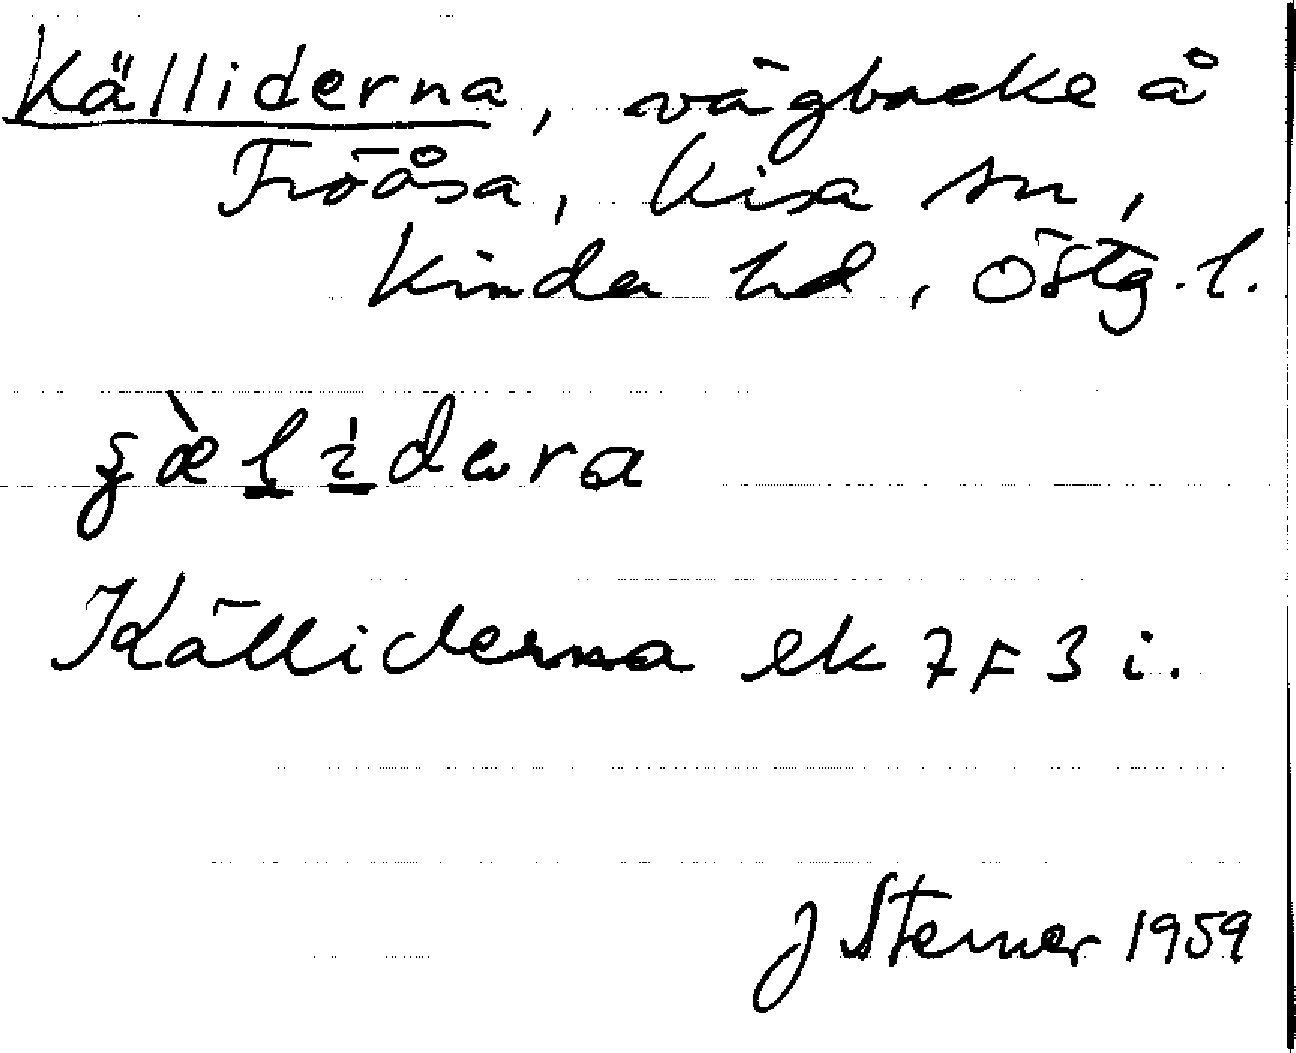 Källiderna, vägbacke å
Fröåsa, Kisa sn,
Kinda hd, Östg.l.
Källiderna ek 7 F 3 i.
J Sterner 1959